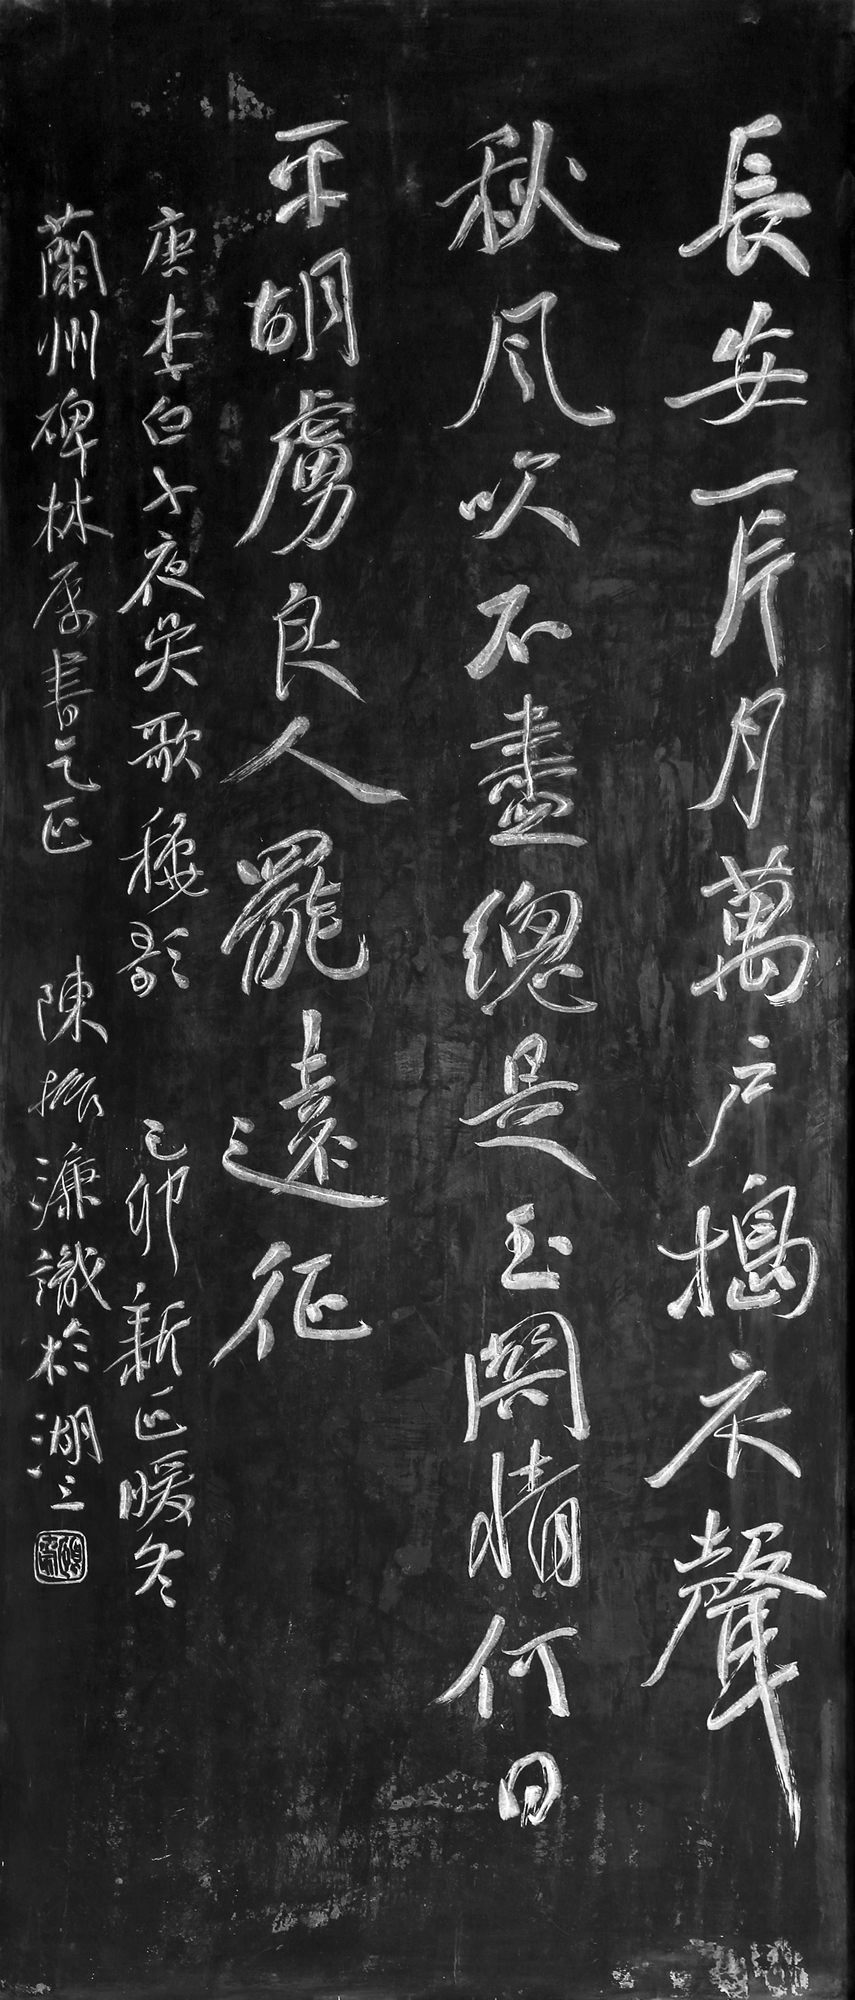 長安一片月萬户搗衣聲
秋风吹不盡總是玉關情何日
平胡虜良人罷遠征
唐李白子夜吴歌 己卯新正暖冬
蘭州碑林属書乞正 陳振濂識於湖上